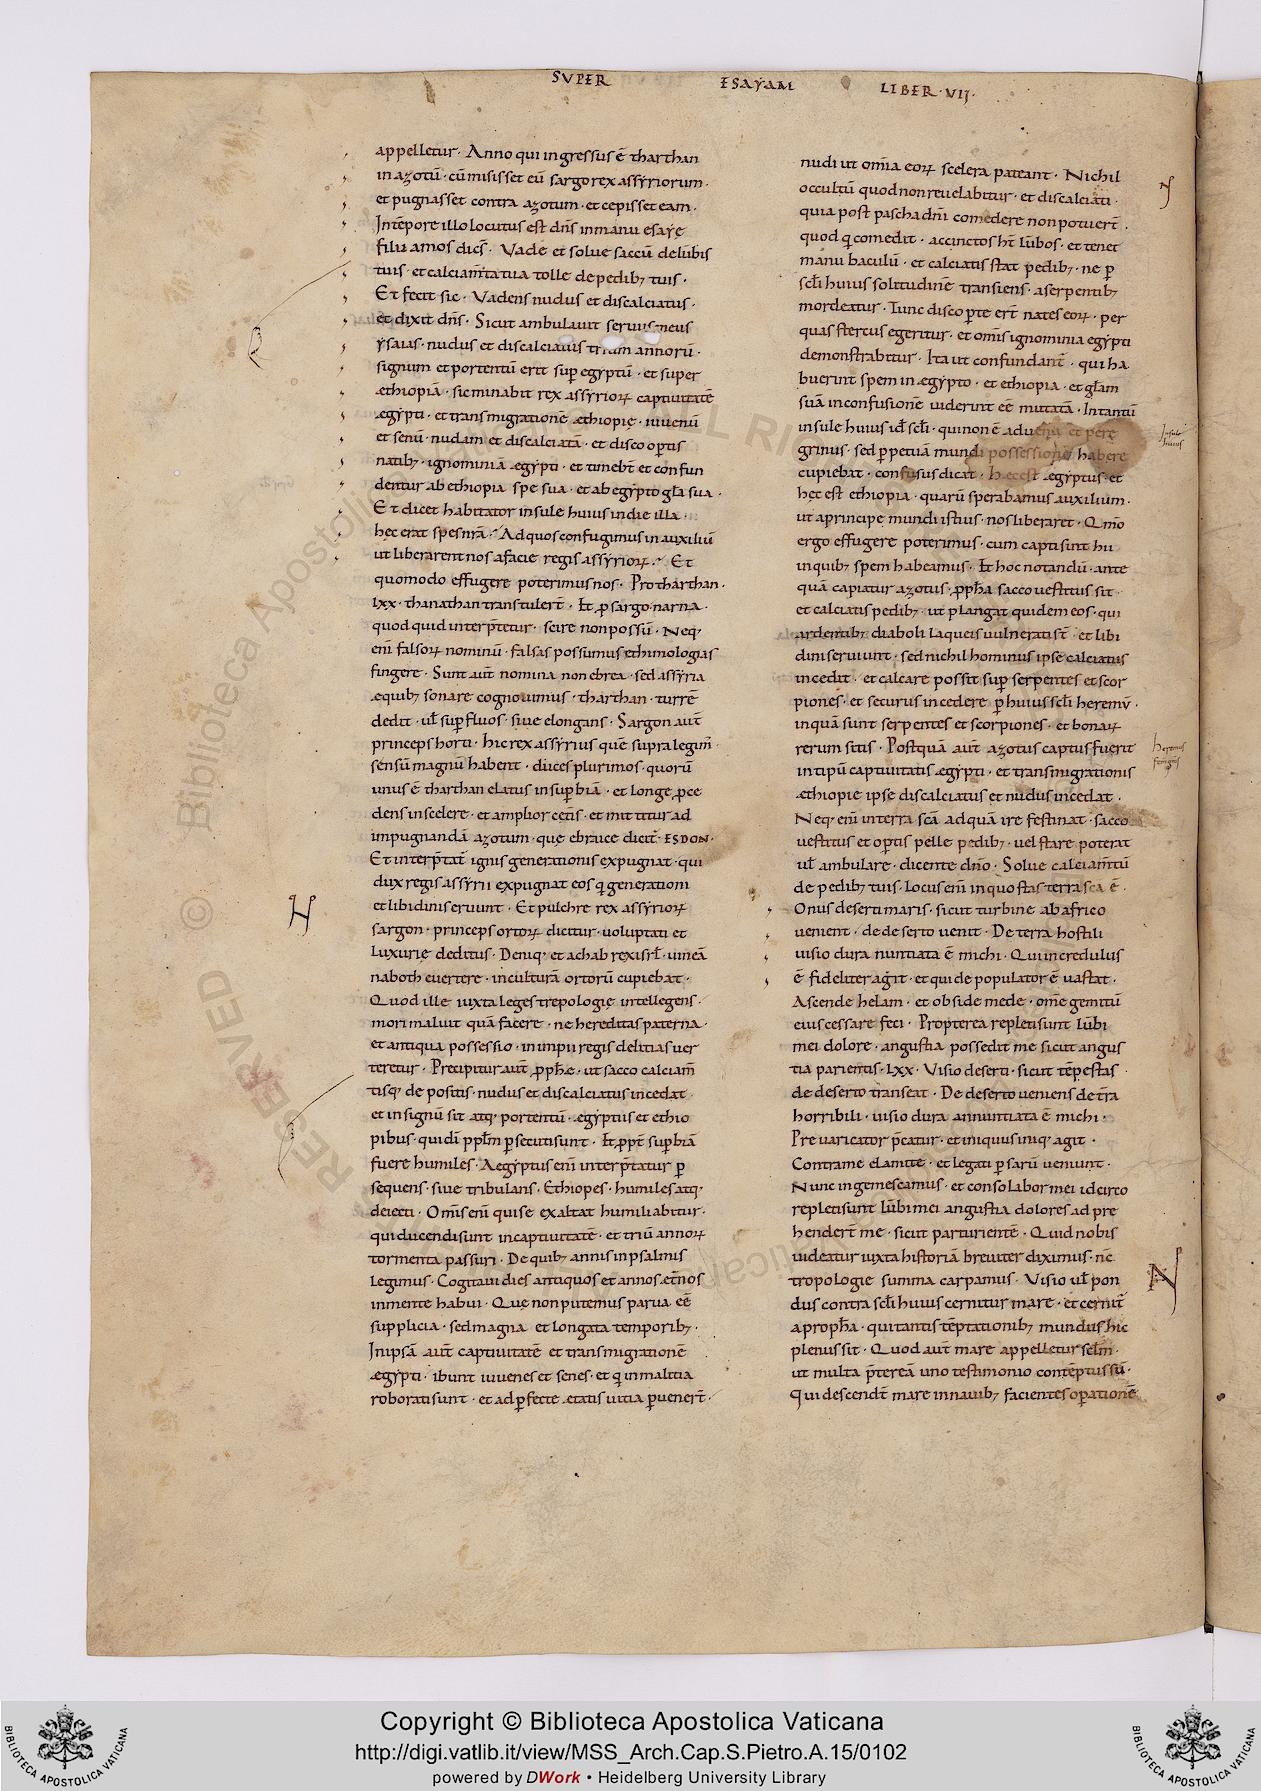 SUPER ESAYAM LIBER·VII·
appelletur· Anno qui ingressus ē tharthan
in azotū· cū misisset eū sargo rex assyriorum·
et pugnasset contra azotum· et cepisset eam·
In tēpore illo locutus est dn̄s in manu esaye
filii amos dic̄s· Vade et solue saccū de lūbis
tuis· et calciam̄ta tua tolle de pedib; tuis·
Et fecit sic· Vadens nudus et discalciatus·
et dixit dn̄s· Sicut ambulauit seruus meus
ysaias· nudus et discalciatus trium annorū·
signum et portentū erit sup egyptū· et super
æthiopiā· sic minabit rex assyrioꝝ captiuitatē
ægypti· et transmigrationē æthiopię· iuuenū
et senū· nudam et discalciatā· et disco optis
natib;· ignominiā ægypti· et timebt̄ et confun
dentur ab ethiopia spe sua· et ab egypto gl̄a sua·
Et dicet habitator insule huius in die illa·
hęc erat spes nr̄a· Ad quos confugimus in auxiliū
ut liberarent nos a facie regis assyrioꝝ· Et
quomodo effugere poterimus nos· Pro tharthan·
lxx· thanathan transtulert̄· Et ꝓ sargo· narna·
quod quid interp̄tetur· scire non possū· Neq;
eni falsoꝝ nominū· falsas possumus ethimologias
fingere· Sunt aūt nomina non ebrea· sed assyria
æquib; sonare cognouimus· tharthan· turrē
dedit· ul̄ supfluos· siue elongans· Sargon aūt
princeps horti· hic rex assyrius quē supra legim̄·
sensū magnū habent· duces plurimos· quorū
unus ē tharthan elatus in supbiā· et longe ꝓce
dens in scelere· et amplior cet̄is· et mittitur ad
impugnandā azotum· que ebraice dicit̄· ESDON·
Et interp̄tat̄ ignis generationis expugnat· qui
dux regis assyrii expugnat eos q generationi
et libidini seruunt· Et pulchre rex assyrioꝝ
sargon· princeps ortoꝝ dicitur· uoluptati et
luxurię deditus· Deniq; et achab rex isrl̄· uineā
naboth euertere· in culturā ortorū cupiebat·
Quod ille iuxta leges trepologię intellegens·
mori maluit quā facere· ne hereditas paterna·
et antiqua possessio· in impii regis delitias uer
teretur· Precipitur aūt ꝓph̄e· ut sacco calciam̄
tisq; de positis· nudus et discalciatus incedat
et in signū sit atq; portentū· ægyptiis et ethio
pibus· qui dī ppl̄m psecuti sunt· Et ꝓpt̄ supbiā
fuere humiles· Aegyptus eni interp̄tatur p
sequens· siue tribulans· Ethiopes· humiles atq;
deiecti· Om̄is eni qui se exaltat humiliabitur·
qui ducendi sunt in captiuitatē· et triū annoꝝ
tormenta passuri· De quib; annis in psalmis
legimus· Cogitaui dies antiquos et annos æt̄nos
in mente habui· Que non putemus parua eē
supplicia· sed magna et longata temporib;·
In ipsā aūt captiuitatē et transmigrationē
ægypti· ibunt iuuenes et senes· et q in malitia
roborati sunt· et ad pfecte ætatis uitia puenert̄·
nudi ut om̄ia eoꝝ scelera pateant· Nichil
occultū quod non reuelabitur· et discalciati·
quia post pascha dn̄i comedere non potuert̄·
quod q comedit· accinctos ht̄ lūbos· et tenet
manu baculū· et calciatis stat pedib; ne p
scl̄i huius solitudinē transiens· a serpentib;
mordeatur· Tunc disco pte ert̄ nates eoꝝ· per
quas stercus egeritur· et om̄is ignominia egypti
demonstrabitur· Ita ut confundant̄· qui ha
buerint spem in ægypto· et ethiopia· et gl̄am
suā in confusionē uiderint eē mutatā· In tantū
insule huius id̄ scl̄i· qui non ē aduena et pere
grinus· sed ppetuā mundi possessionē habere
cupiebat· confusus dicat· hęc est ægyptus· et
hęc est ethiopia· quarū sperabamus auxilium·
ut a principe mundi istius· nos liberaret· Qm̄o
ergo effugere poterimus· cum capti sint hii
in quib; spem habeamus· Et hoc notandū· ante
quā capiatur azotus· ꝓph̄a sacco uestitus sit·
et calciatis pedib;· ut plangat quidem eos· qui
ardentib; diaboli laqueis uulnerati st̄· et libi
dini seruiunt· sed nichilhominus ipse calciatus
incedit· et calcare possit sup serpentes et scor
piones· et securus incedere p huius scl̄i heremū·
in quā sunt serpentes et scorpiones· et bonaꝝ
rerum sitis· Postquā aūt azotus captus fuerit
in tipū captiuitatis ægypti· et transmigrationis
æthiopie ipse discalciatus et nudus incedat·
Neq; eni in terrā scā ad quā ire festinat· sacco
uestitus et optis pelle pedib;· uel stare poterat
ul̄ ambulare· dicente dn̄o· Solue calciam̄tū
de pedib; tuis· locus eni in quo stas terra sca ē·
Onus deserti maris· sicut turbine ab africo
uenient· de deserto uenit· De terra horribili
uisio dura nuntiata ē michi· Qui incredulus
ē fideliter agit· et qui depopulator ē uastat·
Ascende helam· et obside mede· om̄e gemitū
eius cessare feci· Propterea repleti sunt lūbi
mei dolore· angustia possedit me sicut angus
tia parientis· lxx· Visio deserti· sicut tēpestas
de deserto transeat· De deserto ueniens de t̄ra
horribili· uisio dura annuntiata ē michi·
Preuaricator p̄catur· et iniquus iniq; agit·
Contra me elamite· et legati psarū ueniunt·
Nunc ingemescamus· et consolabor mei idcirco
repleti sunt lūbi mei angustia dolores adpre
hendert̄ me· sicut parturientē· Quid nobis
uideatur iuxta historiā breuiter diximus· nc̄
tropologie summa carpamus· Visio ul̄ pon
dus contra scl̄i huius cernitur mare· et cernit̄
a proph̄a· qui tantis tēptationib; mundus hic
plenus sit· Quod aūt mare appelletur sclm̄·
ut multa p̄tereā uno testimonio contēptus sū·
Qui descendt̄ mare in nauib; facientes opationē
Insule huius